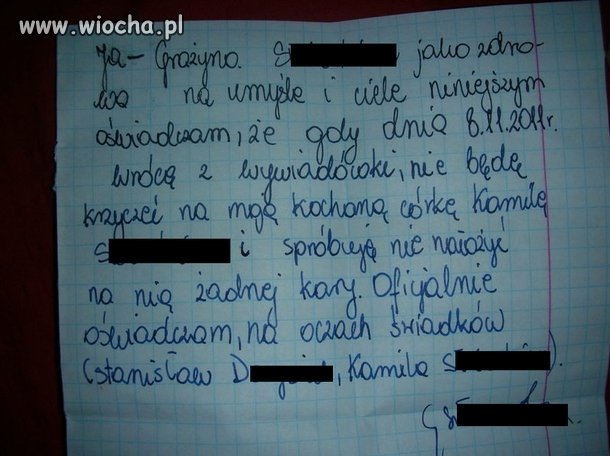 www.wiocha.pl
Ja – Grażyna S jako zdro-
wa na umyśle i ciele niniejszym
oświadczam, że gdy dnia 8.11.2011r.
wrócę z wywiadówki, nie będę
krzyczeć na moją kochaną córkę Kamilę
S i spróbuję nie nałożyć
na nią żadnej kary. Oficjalnie
oświadczam, na oczach świadków
(Stanisław D, Kamila S).